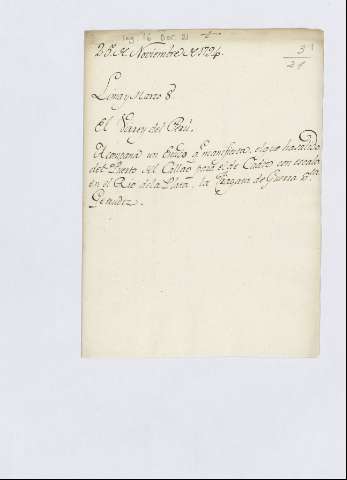 Leg 16 Doc 21
25 de Noviembre de 1794.
3
21
Lima y Marzo 8
El Virrey del Perú.
Acompaña un que manifiesta, el que ha salido
del Puerto del Callao para el de Cadiz con escala
en el Rio de la Plata, la Fragata de Guerra Sta
Gertrudiz.